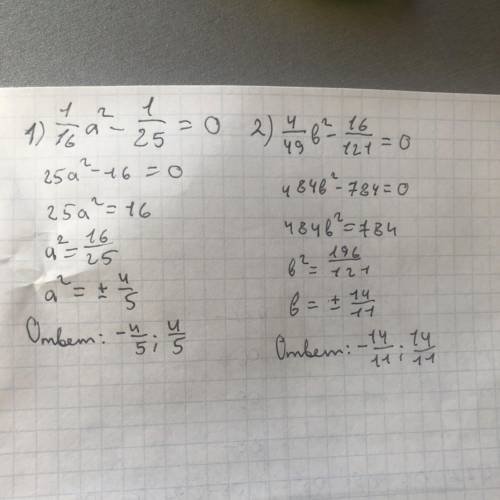 1) 1/16 a² - 1/25 = 0
25a² - 16 = 0
25a² = 16
a² = 16/25
a² = ± 4/5
Ответ: -4/5; 4/5
2) 4/49 b² - 16/121 = 0
484b² - 784 = 0
484b² = 784
b² = 196/121
b = ± 14/11
Ответ: -14/11; 14/11